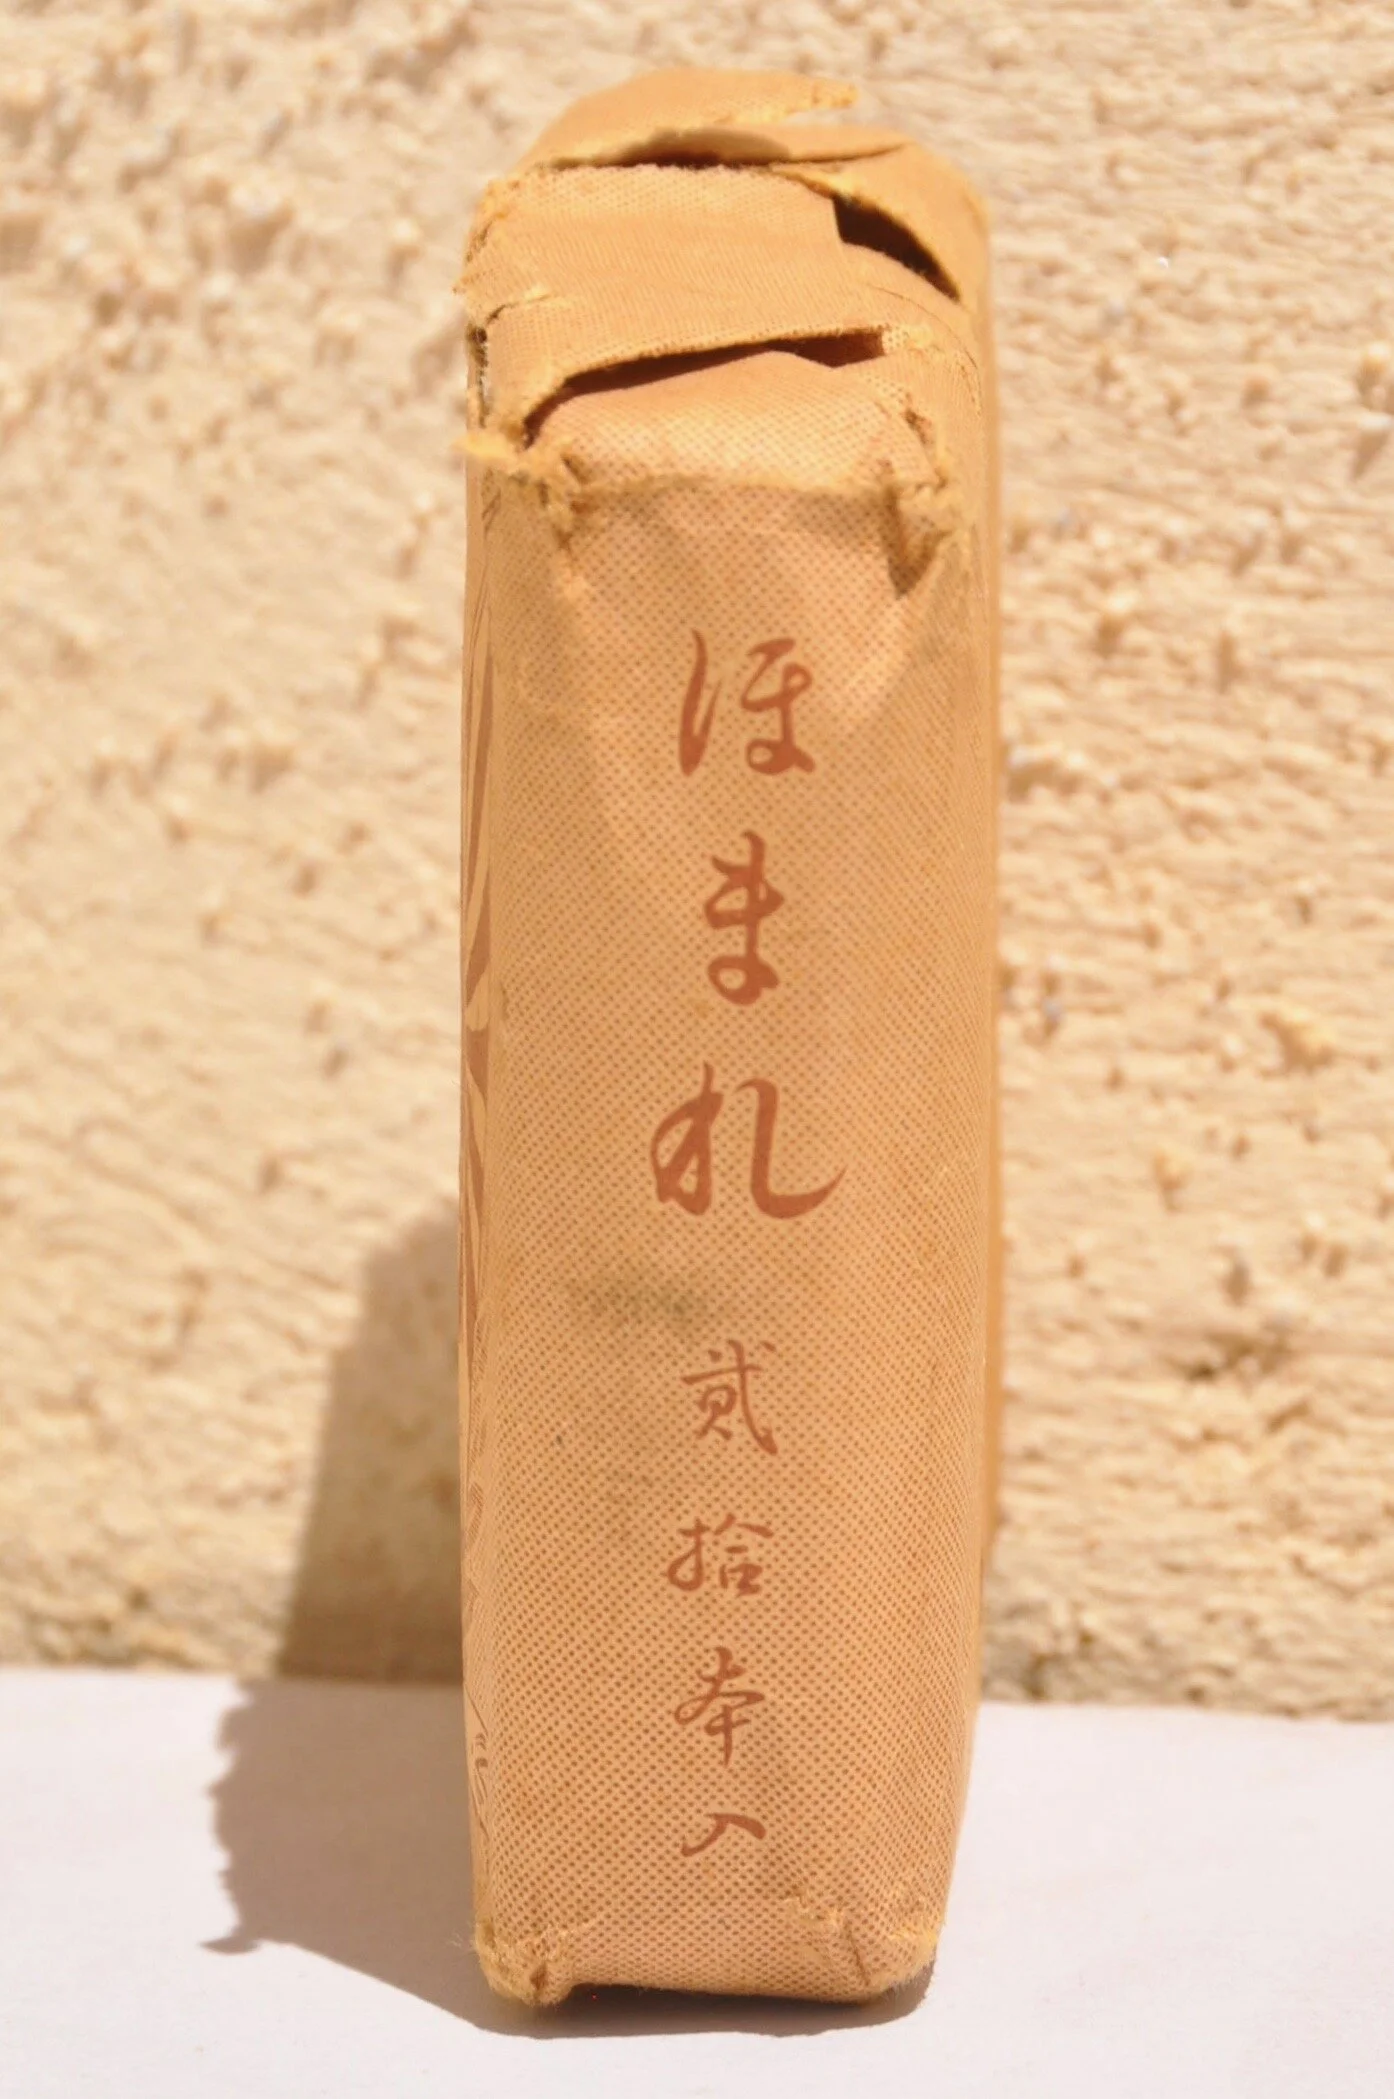 ほまれ
貳拾本入